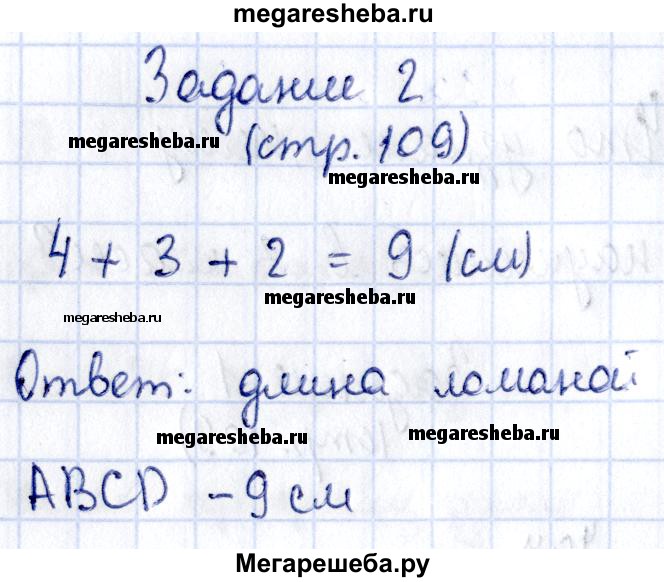 megaresheba.ru
Задание 2
megaresheba.ru (стр. 109)
megaresheba.ru
4 + 3 + 2 = 9 (см)
megaresheba.ru
megaresheba.ru
Ответ: длина ломаной
megaresheba.ru megaresheba.ru
ABCD - 9 см
Мегарешеба.ру